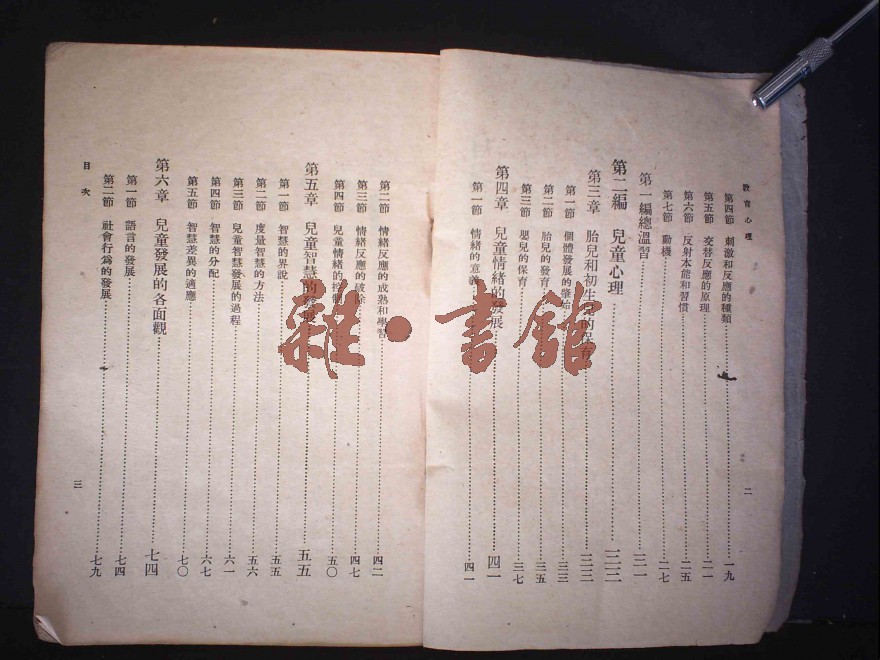 教育心理
第四節 刺激和反應的種類 一九
第五節 交替反應的原理 二一
第六節 反射本能和習慣 二五
第七節 動機 二七
第一編總溫習 三一
第二編 兒童心理 三三
第三章 胎兒和初生兒的保育 三三
第一節 個體發展的肇始 三三
第二節 胎兒的發育 三五
第三節 嬰兒的保育 三七
第四章 兒童情緒的發展 四一
第一節 情緒的意義 四一
二
第二節 情緒反應的成熟和學習 四二
第三節 情緒反應的破除 四七
第四節 兒童情緒的控制 五〇
第五章 兒童智慧的發展 五五
第一節 智慧的界說 五五
第二節 度量智慧的方法 五六
第三節 兒童智慧發展的過程 六一
第四節 智慧的分配 六七
第五節 智慧差異的適應 七〇
第六章 兒童發展的各面觀 七四
第一節 語言的發展 七四
第二節 社會行爲的發展 七九
目次
三
雜·書館